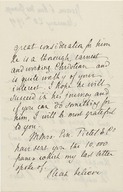 great consideration for him
He is a thorough, earnest
and working Christian, and
is quite worthy of your
interest. I hope he will
succeed in his journey and
if you can do something for
him, I will be most grateful
to you.
Messrs
have sent you the 10,000
francs which my last letter
spoke of.
Please believe